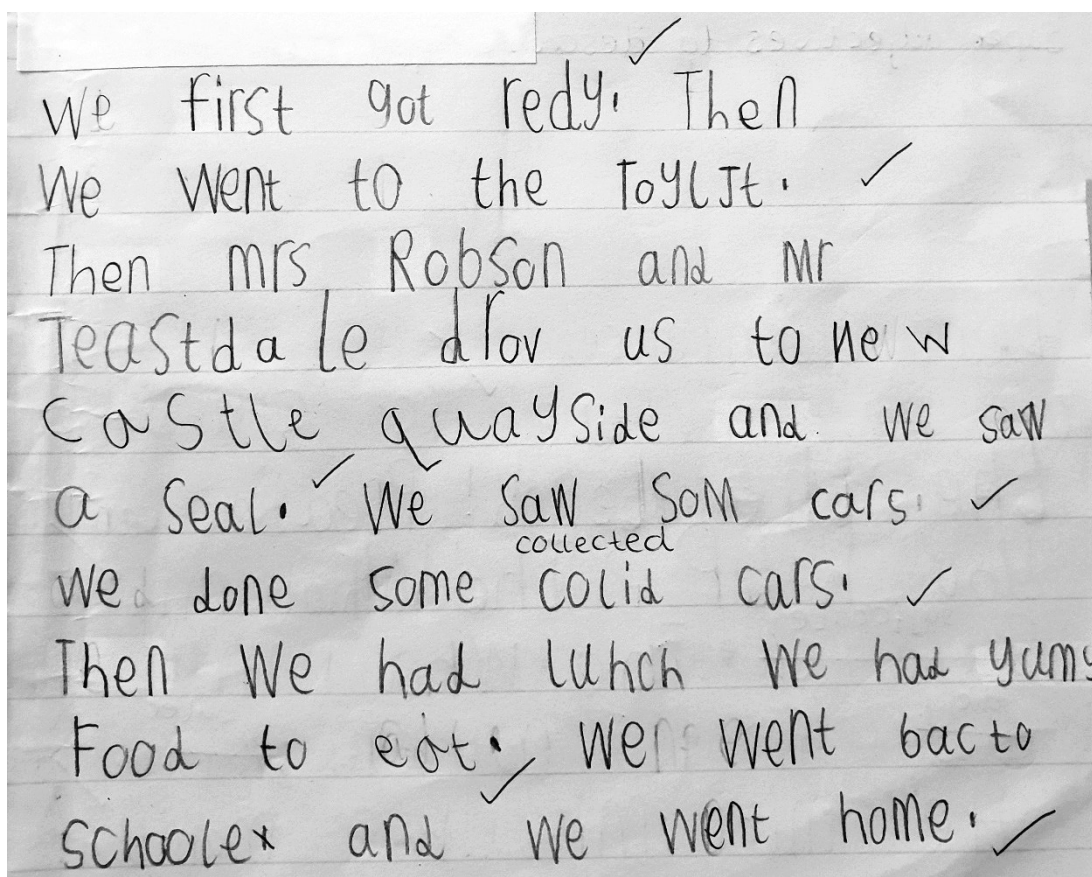 We first got redy. Then
We went to the ToylJt.
Then mrs Robson and Mr
Teastdale drov us to new
castle quayside and we saw
a seal. We saw som cars.
collected
we done some colid cars.
Then we had lunch we had yums
Food to eat. we went bac to
schoolex and we went home.